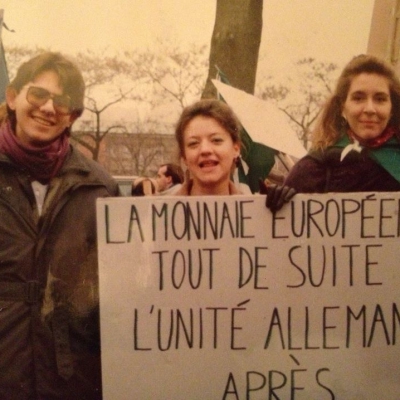 LA MONNAIE EUROPÉE
TOUT DE SUITE
L'UNITÉ ALLEMAN
APRÈS